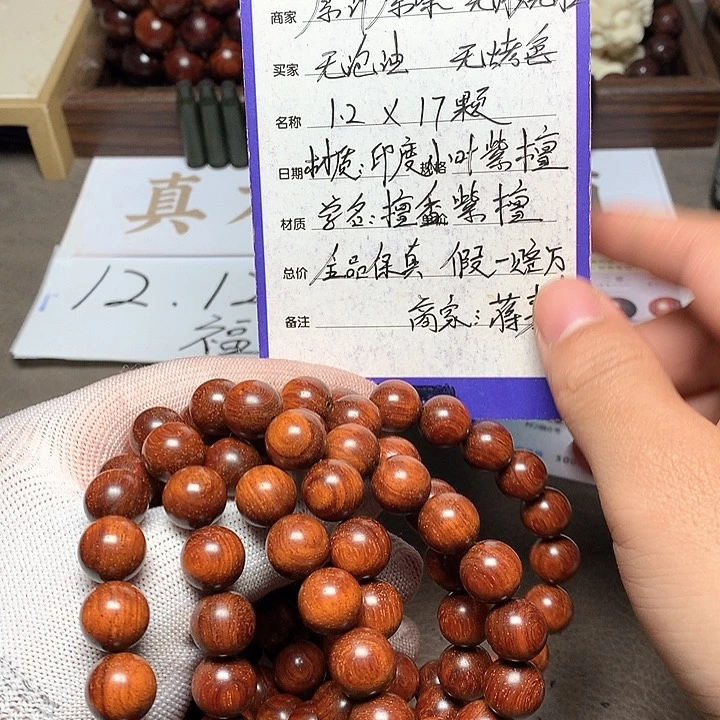 商家
买家 无泡油 无烤色
名称 1.2 X 17颗
日期 材质:印度小叶紫檀
材质 学名:檀香紫檀
总价 全品保真 假一赔万
备注 商家:蒋
真
12.12
福